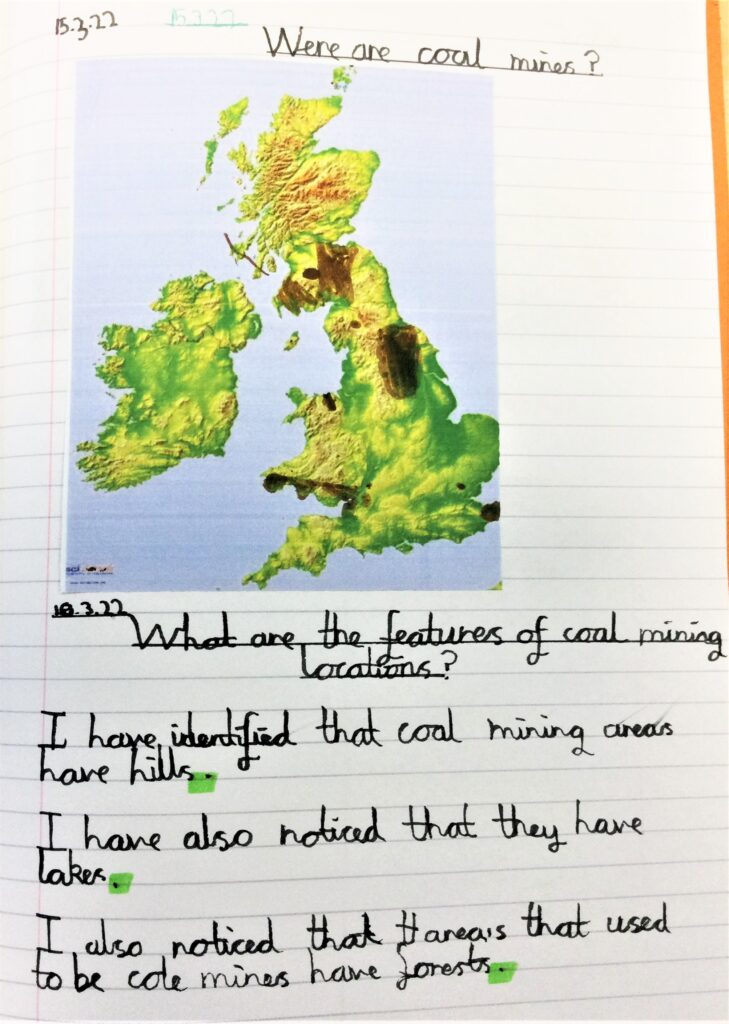 15.3.22 15.3.22
Were are coal mines?
sci
18.3.22
What are the features of coal mining
locations?
I have identified that coal mining areas
have hills.
I have also noticed that they have
lakes.
I also noticed that areas that used
to be cole mines have forests.